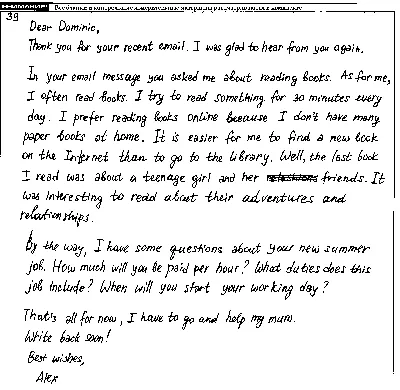 39
Dear Dominic,
Thank you for your recent email. I was glad to hear from you again.
In your email message you asked me about reading books. As for me,
I often read books. I try to read something for 30 minutes every
day. I prefer reading books online because I don't have many
paper books at home. It is easier for me to find a new book
on the Internet than to go to the library. Well, the last book
I read was about a teenage girl and her friends. It
was interesting to read about their adventures and
relationships.
By the way, I have some questions about your new summer
job. How much will you be paid per hour? What duties does this
job include? When will you start your working day?
That's all for now, I have to go and help my mum.
Write back soon!
Best wishes,
Alex